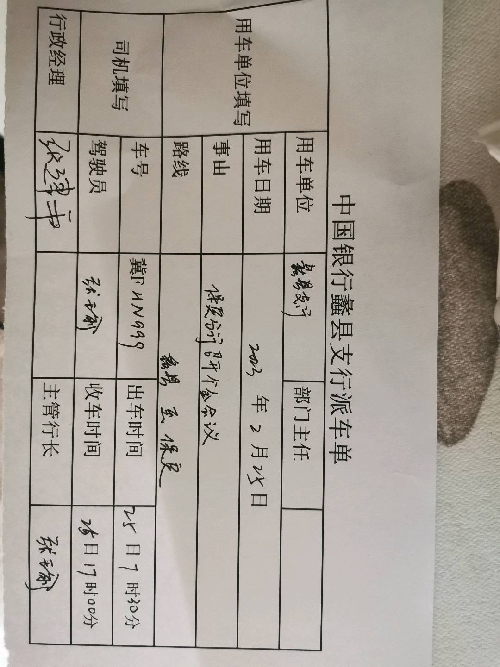 中国银行蠡县支行派车单
用车单位填写 用车单位 蠡县支行 部门主任
用车日期 2023 年 2 月 25 日
事由 保定分行召开会议
路线 蠡县 至 保定
司机填写 车号 冀F HN999 出车时间 25 日 7 时30分
驾驶员 收车时间 25 日 17 时00分
行政经理 主管行长